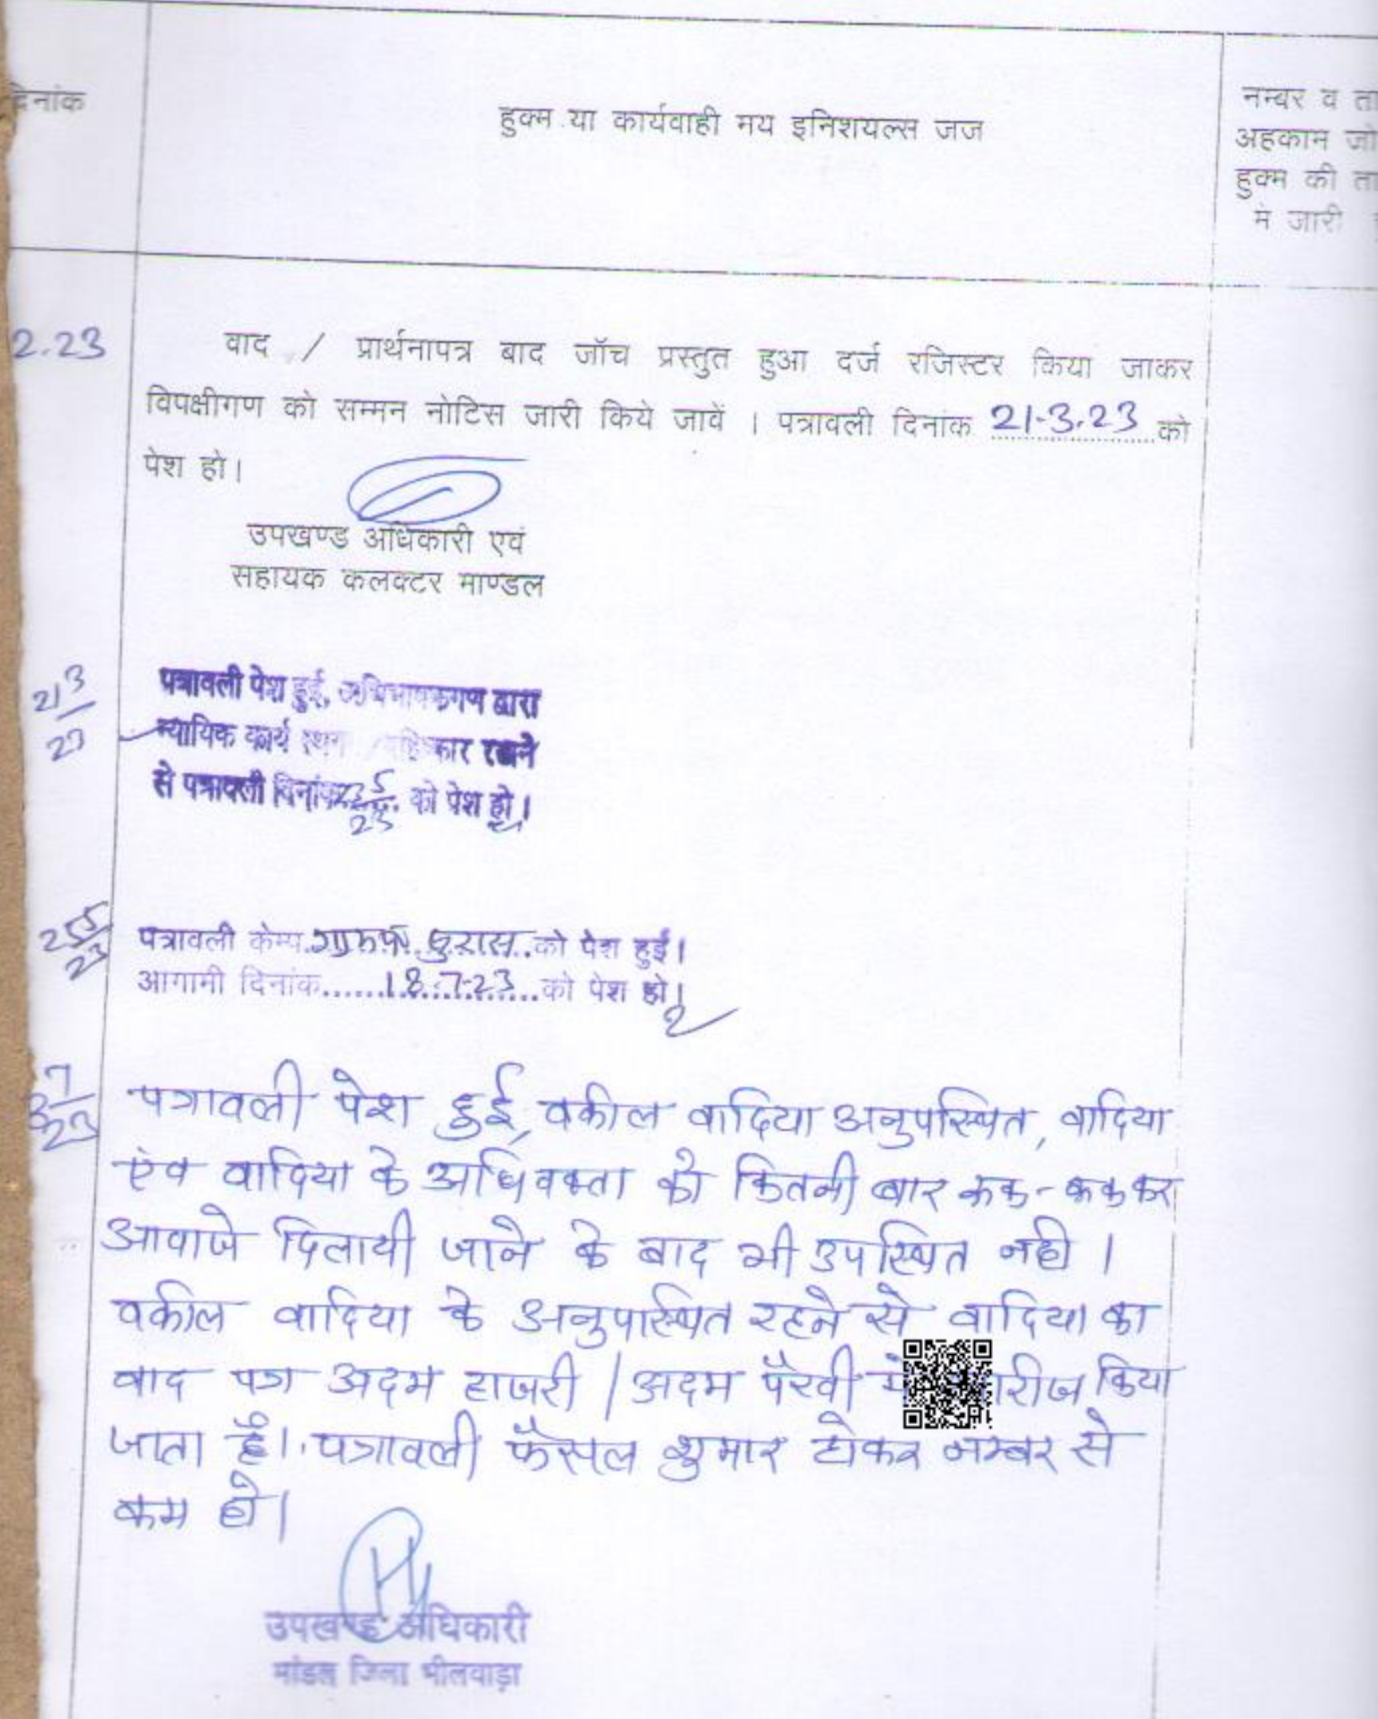 दिनांक
हुक्म या कार्यवाही मय इनिशयल्स जज
नम्बर व ता
अहकाम जो
हुक्म की ता
में जारी
2.23
वाद / प्रार्थनापत्र बाद जॉच प्रस्तुत हुआ दर्ज रजिस्टर किया जाकर
विपक्षीगण को सम्मन नोटिस जारी किये जावें । पत्रावली दिनांक 21-3.23 को
पेश हो।
उपखण्ड अधिकारी एवं
सहायक कलक्टर माण्डल
21/3
23
पत्रावली पेश हुई, अभिभाषकगण द्वारा
न्यायिक कार्य स्थगन / बहिष्कार रखने
से पत्रावली दिनांक को पेश हो।
25/5
23
पत्रावली केम्प को पेश हुई।
आगामी दिनांक......18.7.23......को पेश हो।
7
23
पत्रावली पेश हुई, वकील वादिया अनुपस्थित, वादिया
एंव वादिया के अधिवक्ता को कितनी बार रूक-रूककर
आवाजे दिलायी जाने के बाद भी उपस्थित नही ।
वकील वादिया के अनुपस्थित रहने से वादिया का
वाद पत्र अदम हाजरी / अदम पैरवी में किया
जाता है। पत्रावली फैसल शुमार होकर नम्बर से
कम हो।
उपखण्ड अधिकारी
मांडल जिला भीलवाड़ा